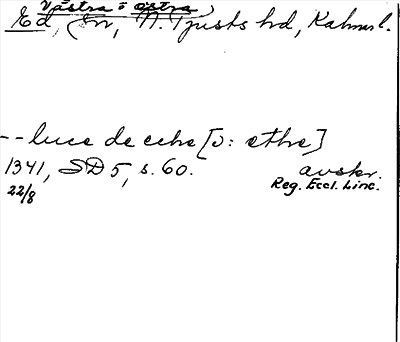 Västra o östra
Ed, sn, N. Tjusts hd, Kalmar l.
-- luce de eche [ɔ: ethe]
1341, SD 5, s. 60. avskr.
22/8 Reg. Eccl. Linc.